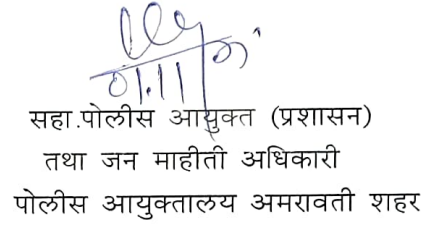 सहा.पोलीस आयुक्त (प्रशासन)
तथा जन माहीती अधिकारी
पोलीस आयुक्तालय अमरावती शहर